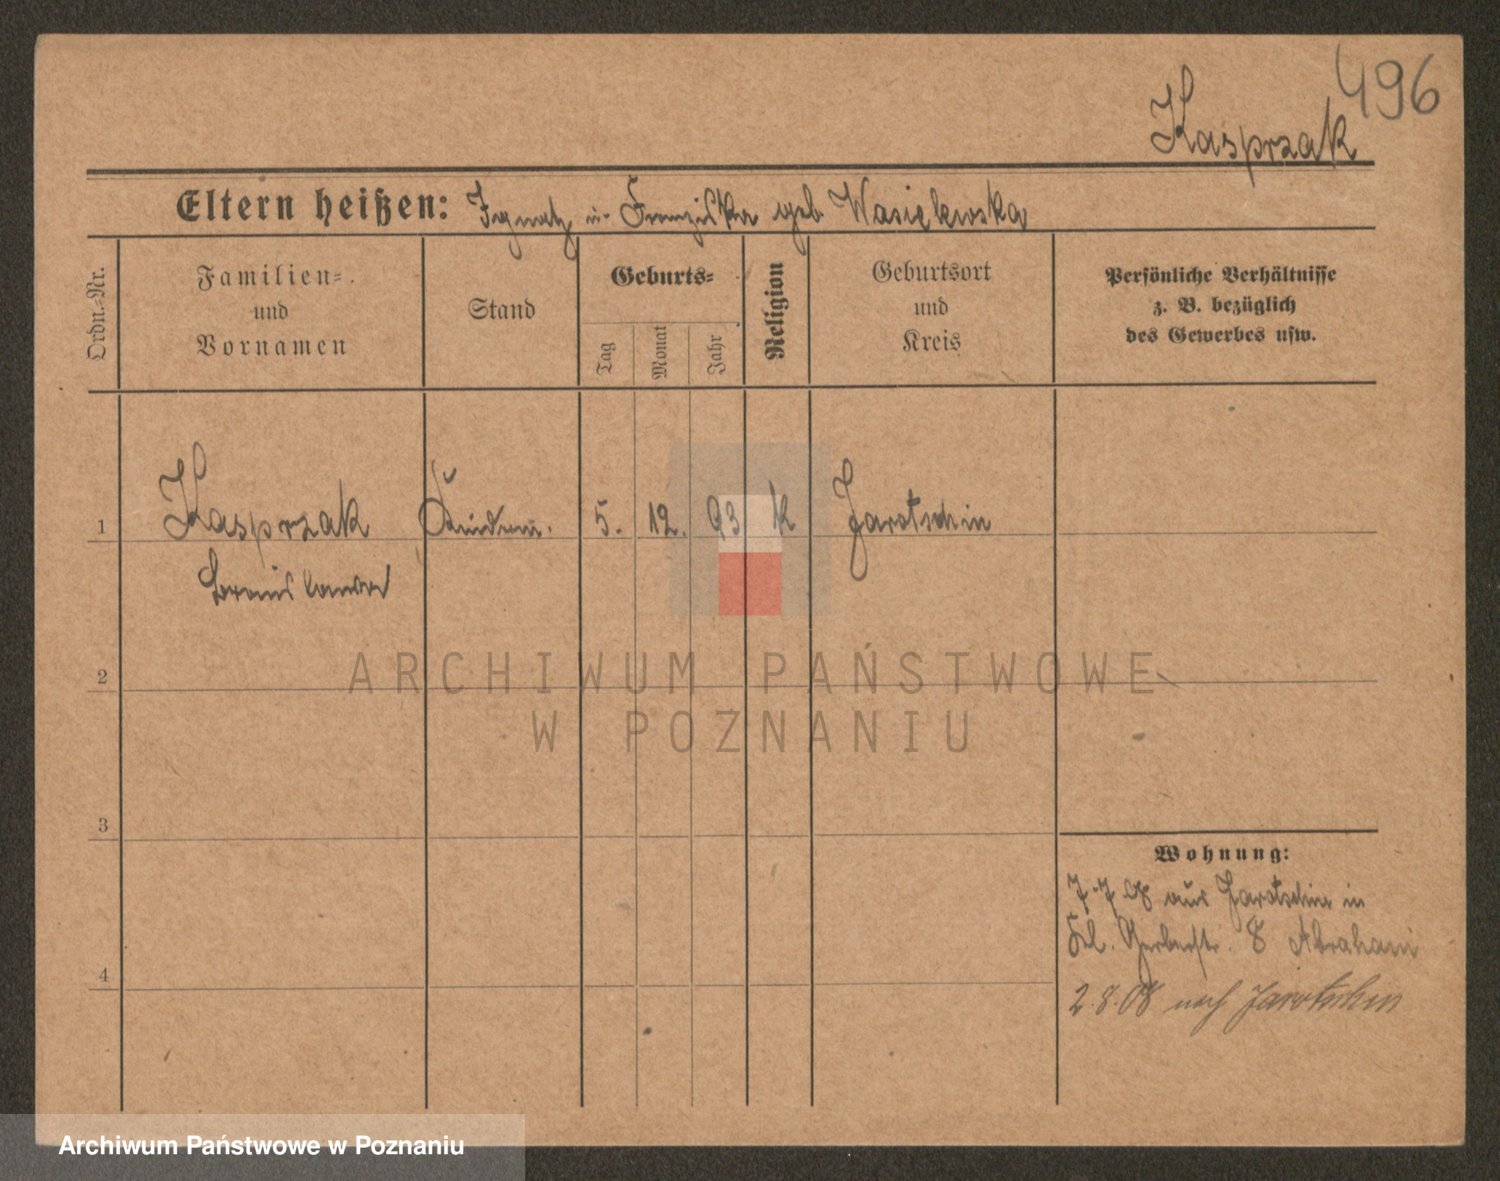 496
Kasprzak
Eltern heißen: Ignatz u. Franziska geb Wasielewska
Ordn.=Nr.
Familien=
und
Vornamen
Stand
Geburts=
Tag
Monat
Jahr
Religion
Geburtsort
und
Kreis
Persönliche Verhältnisse
z. B. bezüglich
des Gewerbes usw.
1 Kasprzak 5. 12. 93 k Jarotschin
2
3
4
Wohnung:
7.7.08 aus Jarotschin in
Kl. Gerberstr. 8 Abraham
2.8.08 nach Jarotschin
ARCHIWUM PAŃSTWOWE
W POZNANIU
Archiwum Państwowe w Poznaniu